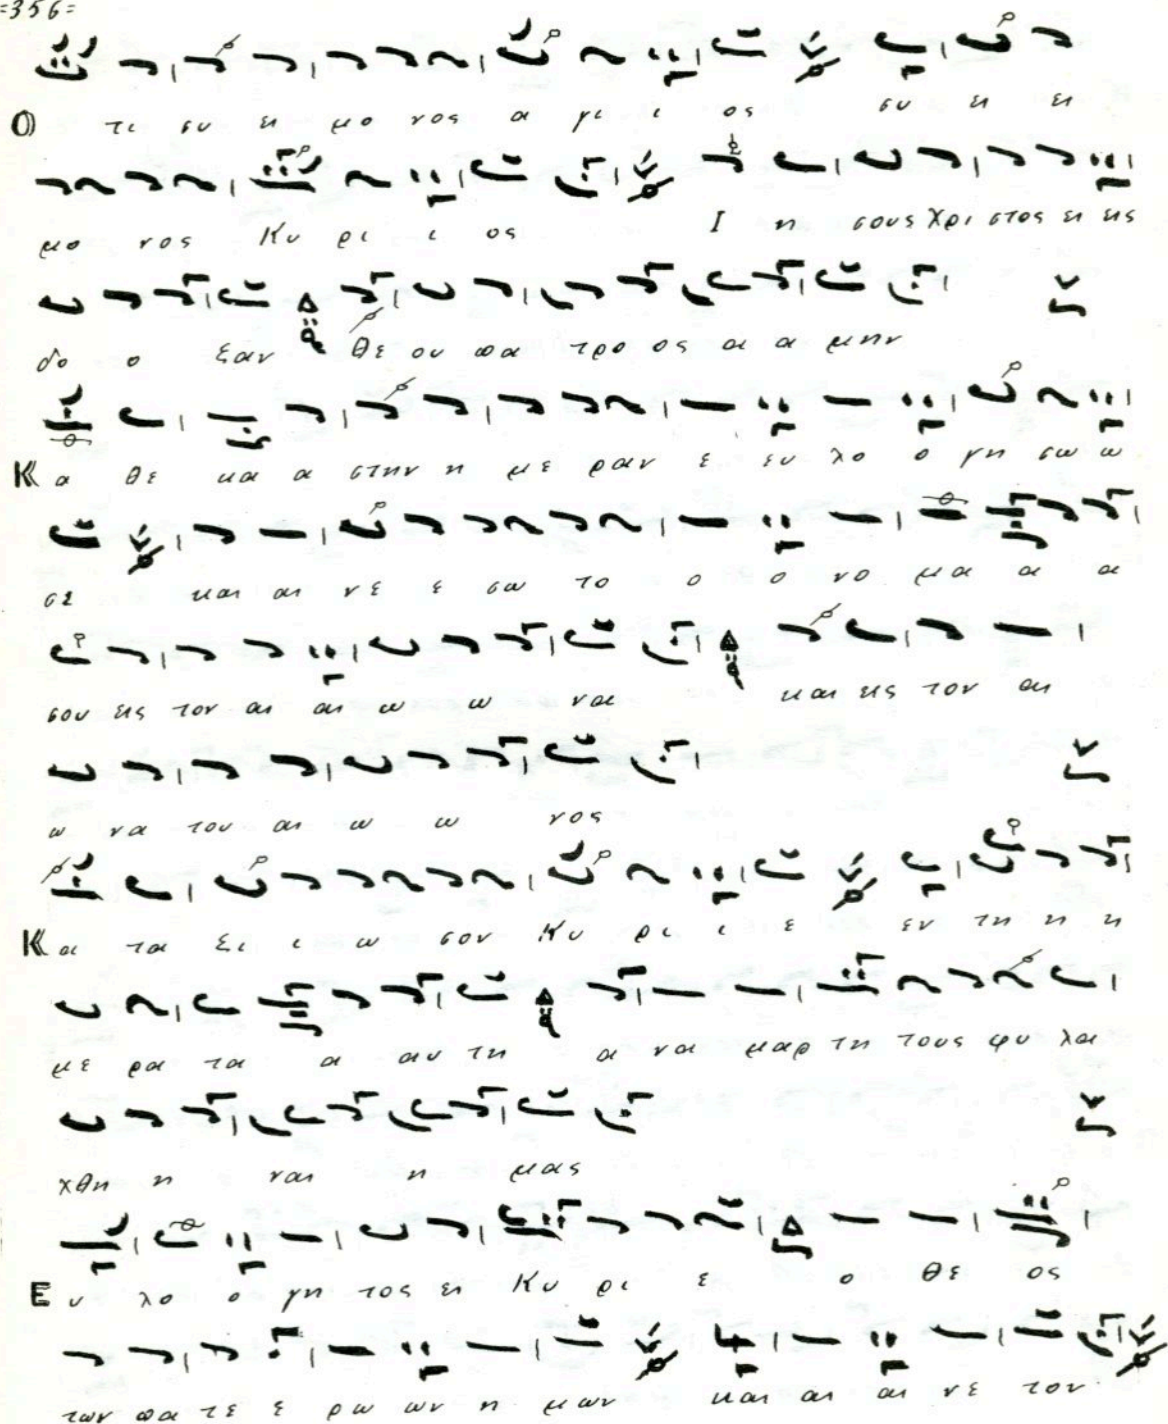 =356=
Ο τι συ ει μο νος α γι ι ος συ ει ει
μο νος Κυ ρι ι ος Ι η σους Χρι στος ει εις
δο ο ξαν Θε ου πα τρο ος α α μην
Κ α θε κα α στην η με ραν ε ευ λο ο γη σω ω
σε και αι νε ε σω το ο ο νο μα α α
σου εις τον αι αι ω ω να και εις τον αι
ω να του αι ω ω νος
Κ α τα ξι ι ω σον Κυ ρι ι ε εν τη η η
με ρα τα α αυ τη α να μαρ τη τους φυ λα
χθη η ναι η μας
Ε υ λο ο γη τος ει Κυ ρι ε ο θε ος
των πα τε ε ρω ων η μων και αι αι νε τον